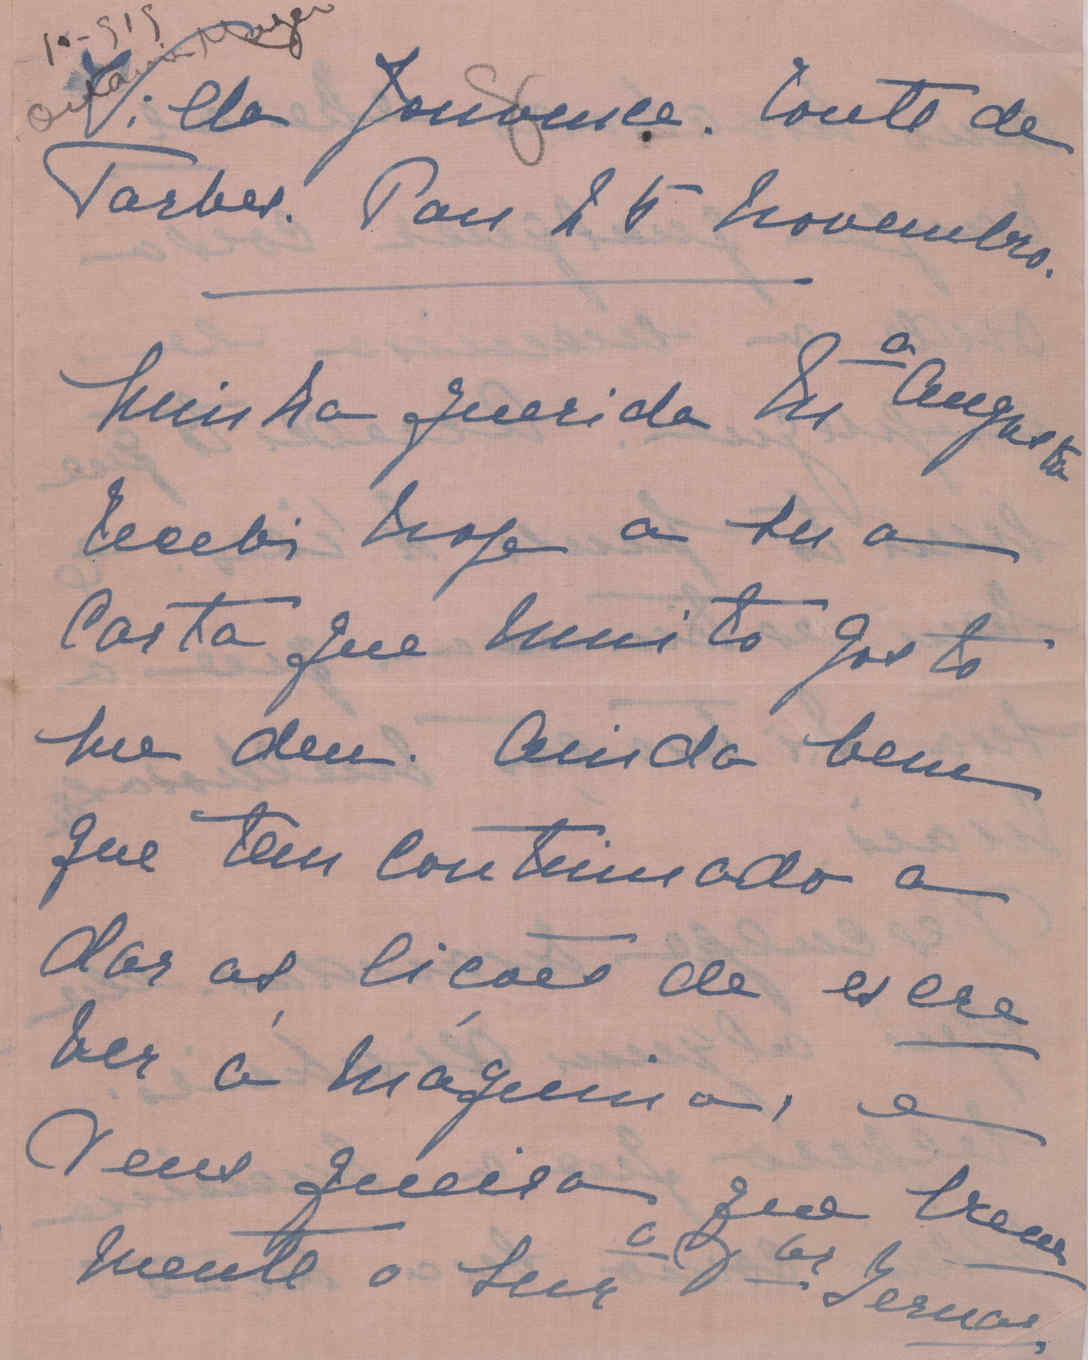 10-919
Villa Jouvence. Route de
Tarbes. Pau 25 Novembro.
Minha querida Mª Augusta
Recebi hoje a sua
Carta que muito gosto
me deu. Ainda bem
que tem continuado a
dar as licões de escre
ver á máquina, e
Deus queira que breve
mente o Snr